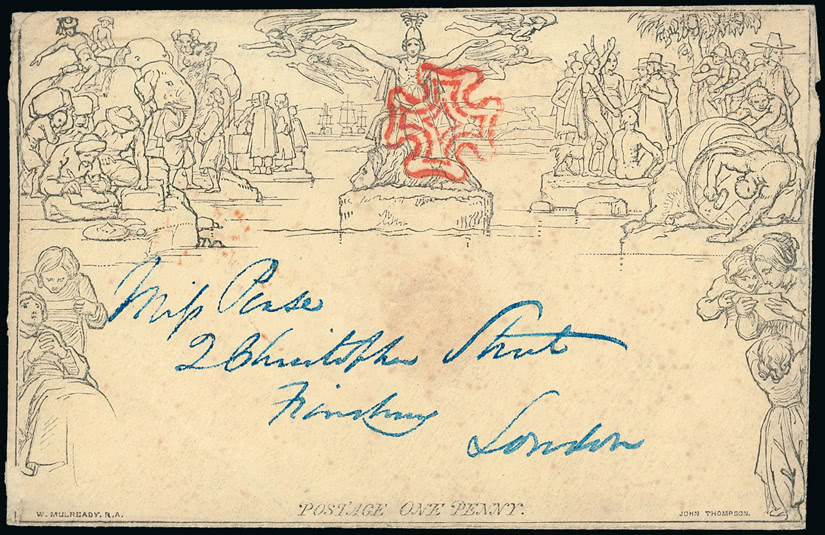 Miss Pease
2 Christopher Street
Finsbury
London
W. MULREADY. R.A.
POSTAGE ONE PENNY.
JOHN THOMPSON.